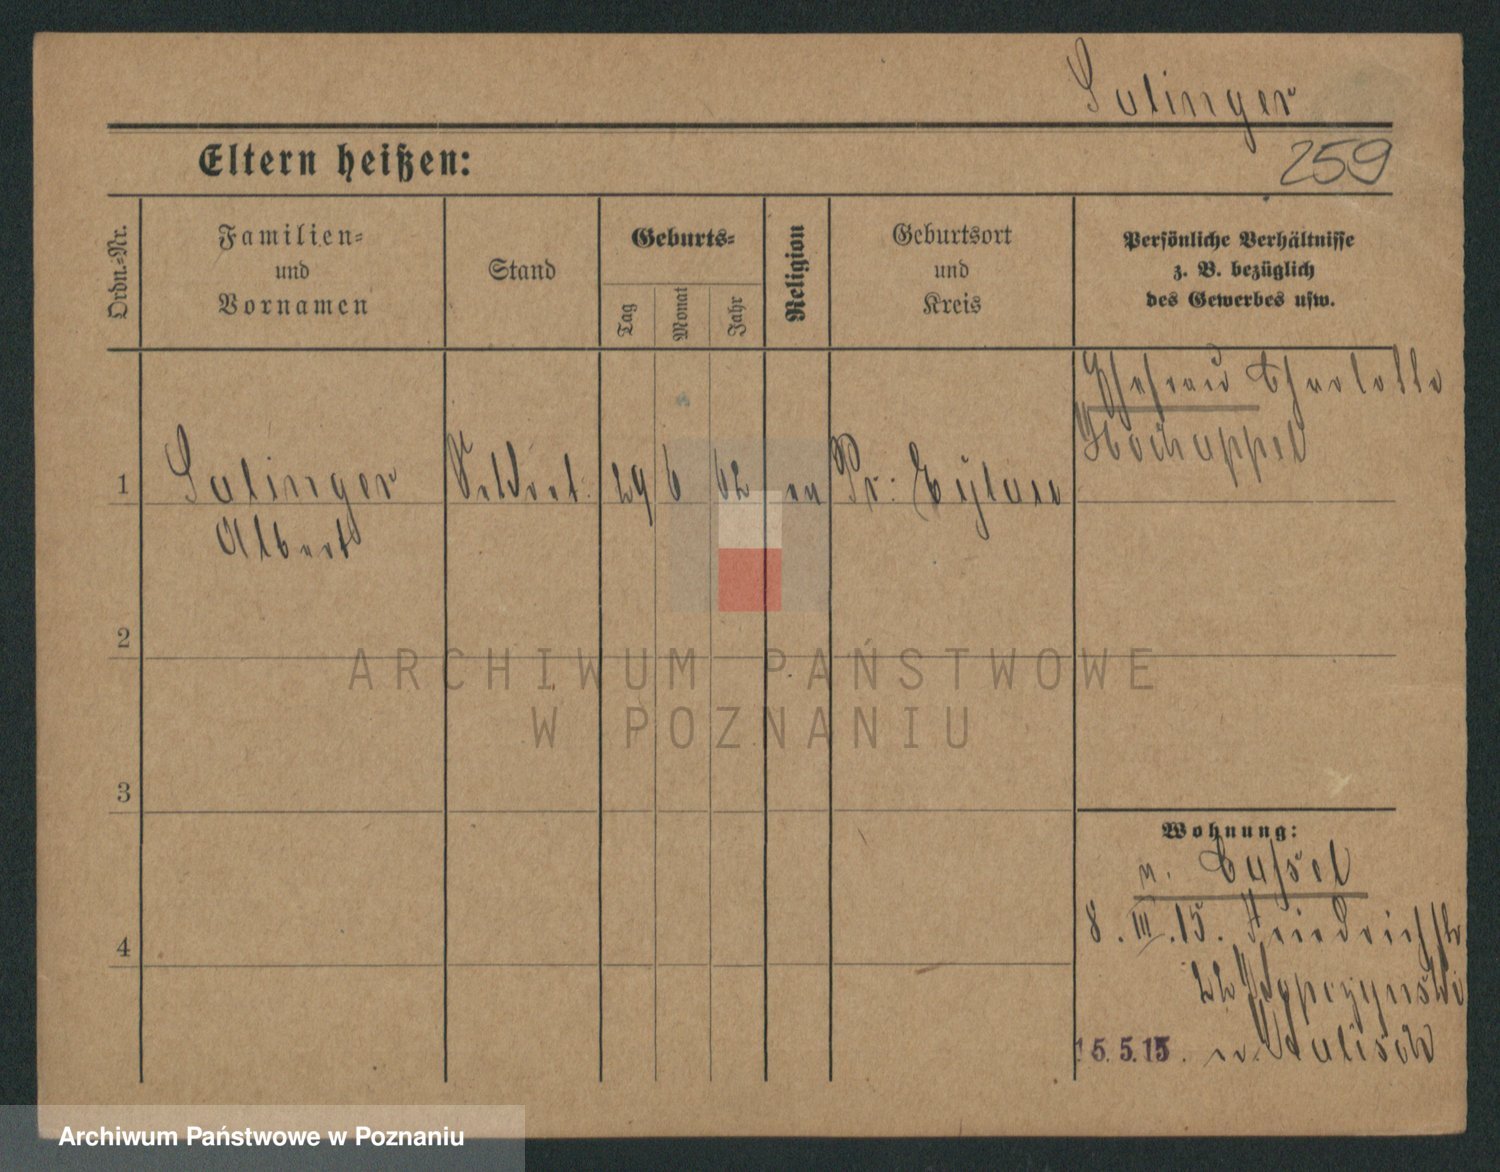 Salinger
Eltern heißen:
259
Ordn.-Nr.
Familien-
und
Vornamen
Stand
Geburts-
Tag
Monat
Jahr
Religion
Geburtsort
und
Kreis
Persönliche Verhältnisse
z. B. bezüglich
des Gewerbes usw.
Ehefrau Charlotte
Hochappel
1
Salinger
29
6
62
ev
Pr: Eylau
Albert
2
ARCHIWUM PAŃSTWOWE
W POZNANIU
3
Wohnung:
n. Cassel
8. III. 15. Friedrichstr
22
4
15. 5. 15. n. Kalisch
Archiwum Państwowe w Poznaniu